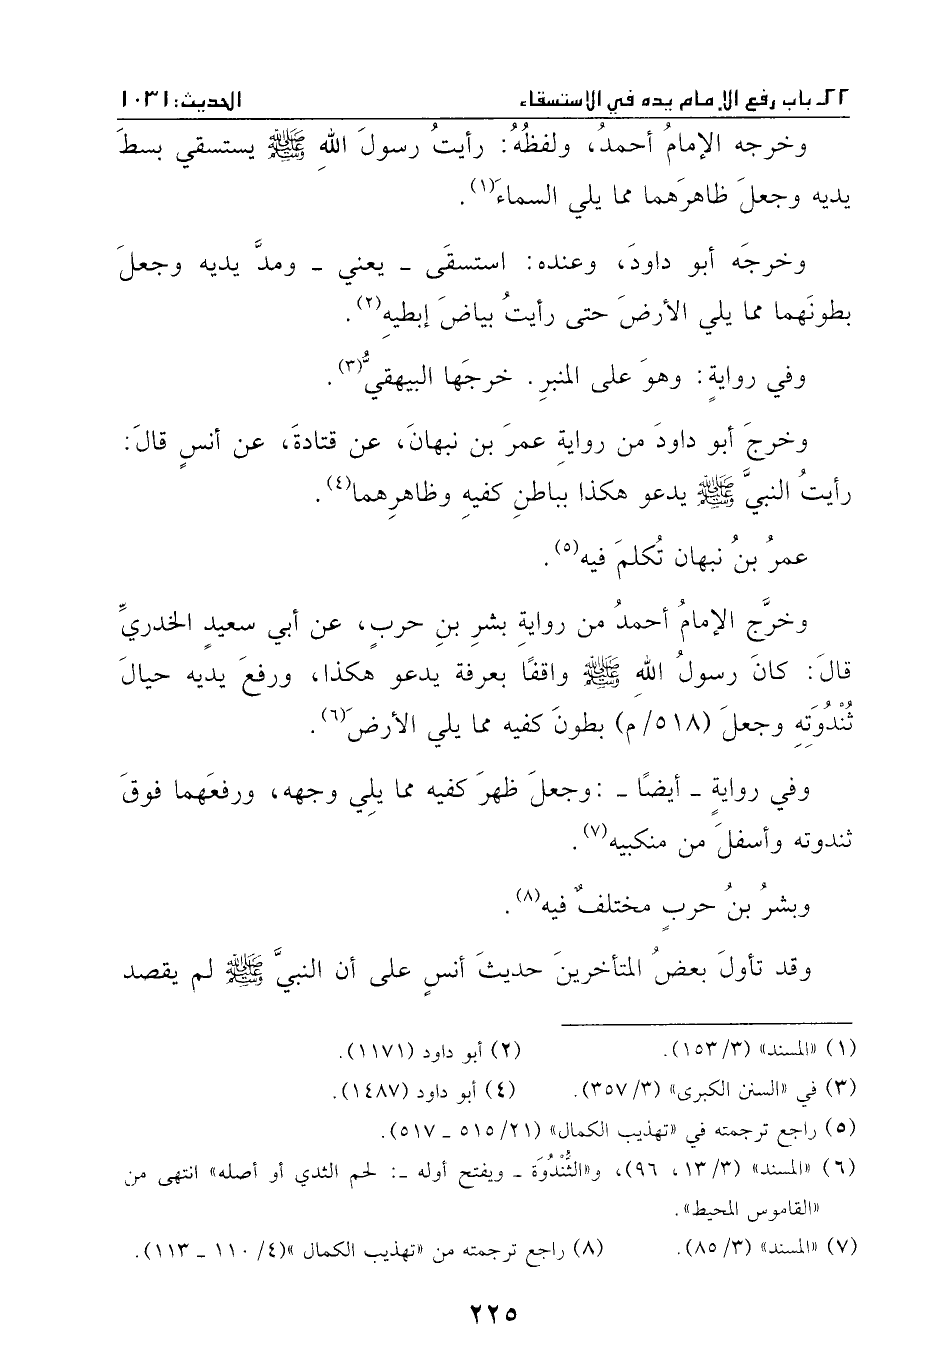 ٢٢ـ باب رفع الإمام يده في الاستسقاء الحديث: ١٠٣١
وخرجه الإمامُ أحمدُ، ولفظُهُ: رأيتُ رسولَ اللهِ ﷺ يستسقي بسطَ
يديه وجعلَ ظاهرَهما مما يلي السماءَ(١).
وخرجَه أبو داودَ، وعنده: استسقَى ـ يعني ـ ومدَّ يديه وجعلَ
بطونَهما مما يلي الأرضَ حتى رأيتُ بياضَ إبطيهِ(٢).
وفي روايةٍ: وهوَ على المنبرِ. خرجَها البيهقيُّ(٣).
وخرجَ أبو داودَ من روايةِ عمرَ بن نبهانَ، عن قتادةَ، عن أنسٍ قالَ:
رأيتُ النبيَّ ﷺ يدعو هكذا بباطنِ كفيهِ وظاهرِهما(٤).
عمرُ بنُ نبهان تُكلمَ فيه(٥).
وخرَّج الإمامُ أحمدُ من روايةِ بشرِ بنِ حربٍ، عن أبي سعيدٍ الخدريِّ
قالَ: كانَ رسولُ اللهِ ﷺ واقفًا بعرفة يدعو هكذا، ورفعَ يديه حيالَ
ثُنْدُوَتِهِ وجعلَ (٥١٨/م) بطونَ كفيه مما يلي الأرضَ(٦).
وفي روايةٍ ـ أيضًا ـ: وجعلَ ظهرَ كفيه مما يلِي وجهه، ورفعَهما فوقَ
ثندوته وأسفلَ من منكبيه(٧).
وبشرُ بنُ حربٍ مختلفٌ فيه(٨).
وقد تأولَ بعضُ المتأخرينَ حديثَ أنسٍ على أن النبيَّ ﷺ لم يقصد
(١) «المسند» (٣/ ١٥٣). (٢) أبو داود (١١٧١).
(٣) في «السنن الكبرى» (٣/ ٣٥٧). (٤) أبو داود (١٤٨٧).
(٥) راجع ترجمته في «تهذيب الكمال» (٢١/ ٥١٥ ـ ٥١٧).
(٦) «المسند» (٣/ ١٣، ٩٦)، و«الثُّنْدُوَة ـ ويفتح أوله ـ: لحم الثدي أو أصله» انتهى من
«القاموس المحيط».
(٧) «المسند» (٣/ ٨٥). (٨) راجع ترجمته من «تهذيب الكمال »(٤/ ١١٠ ـ ١١٣).
٢٢٥